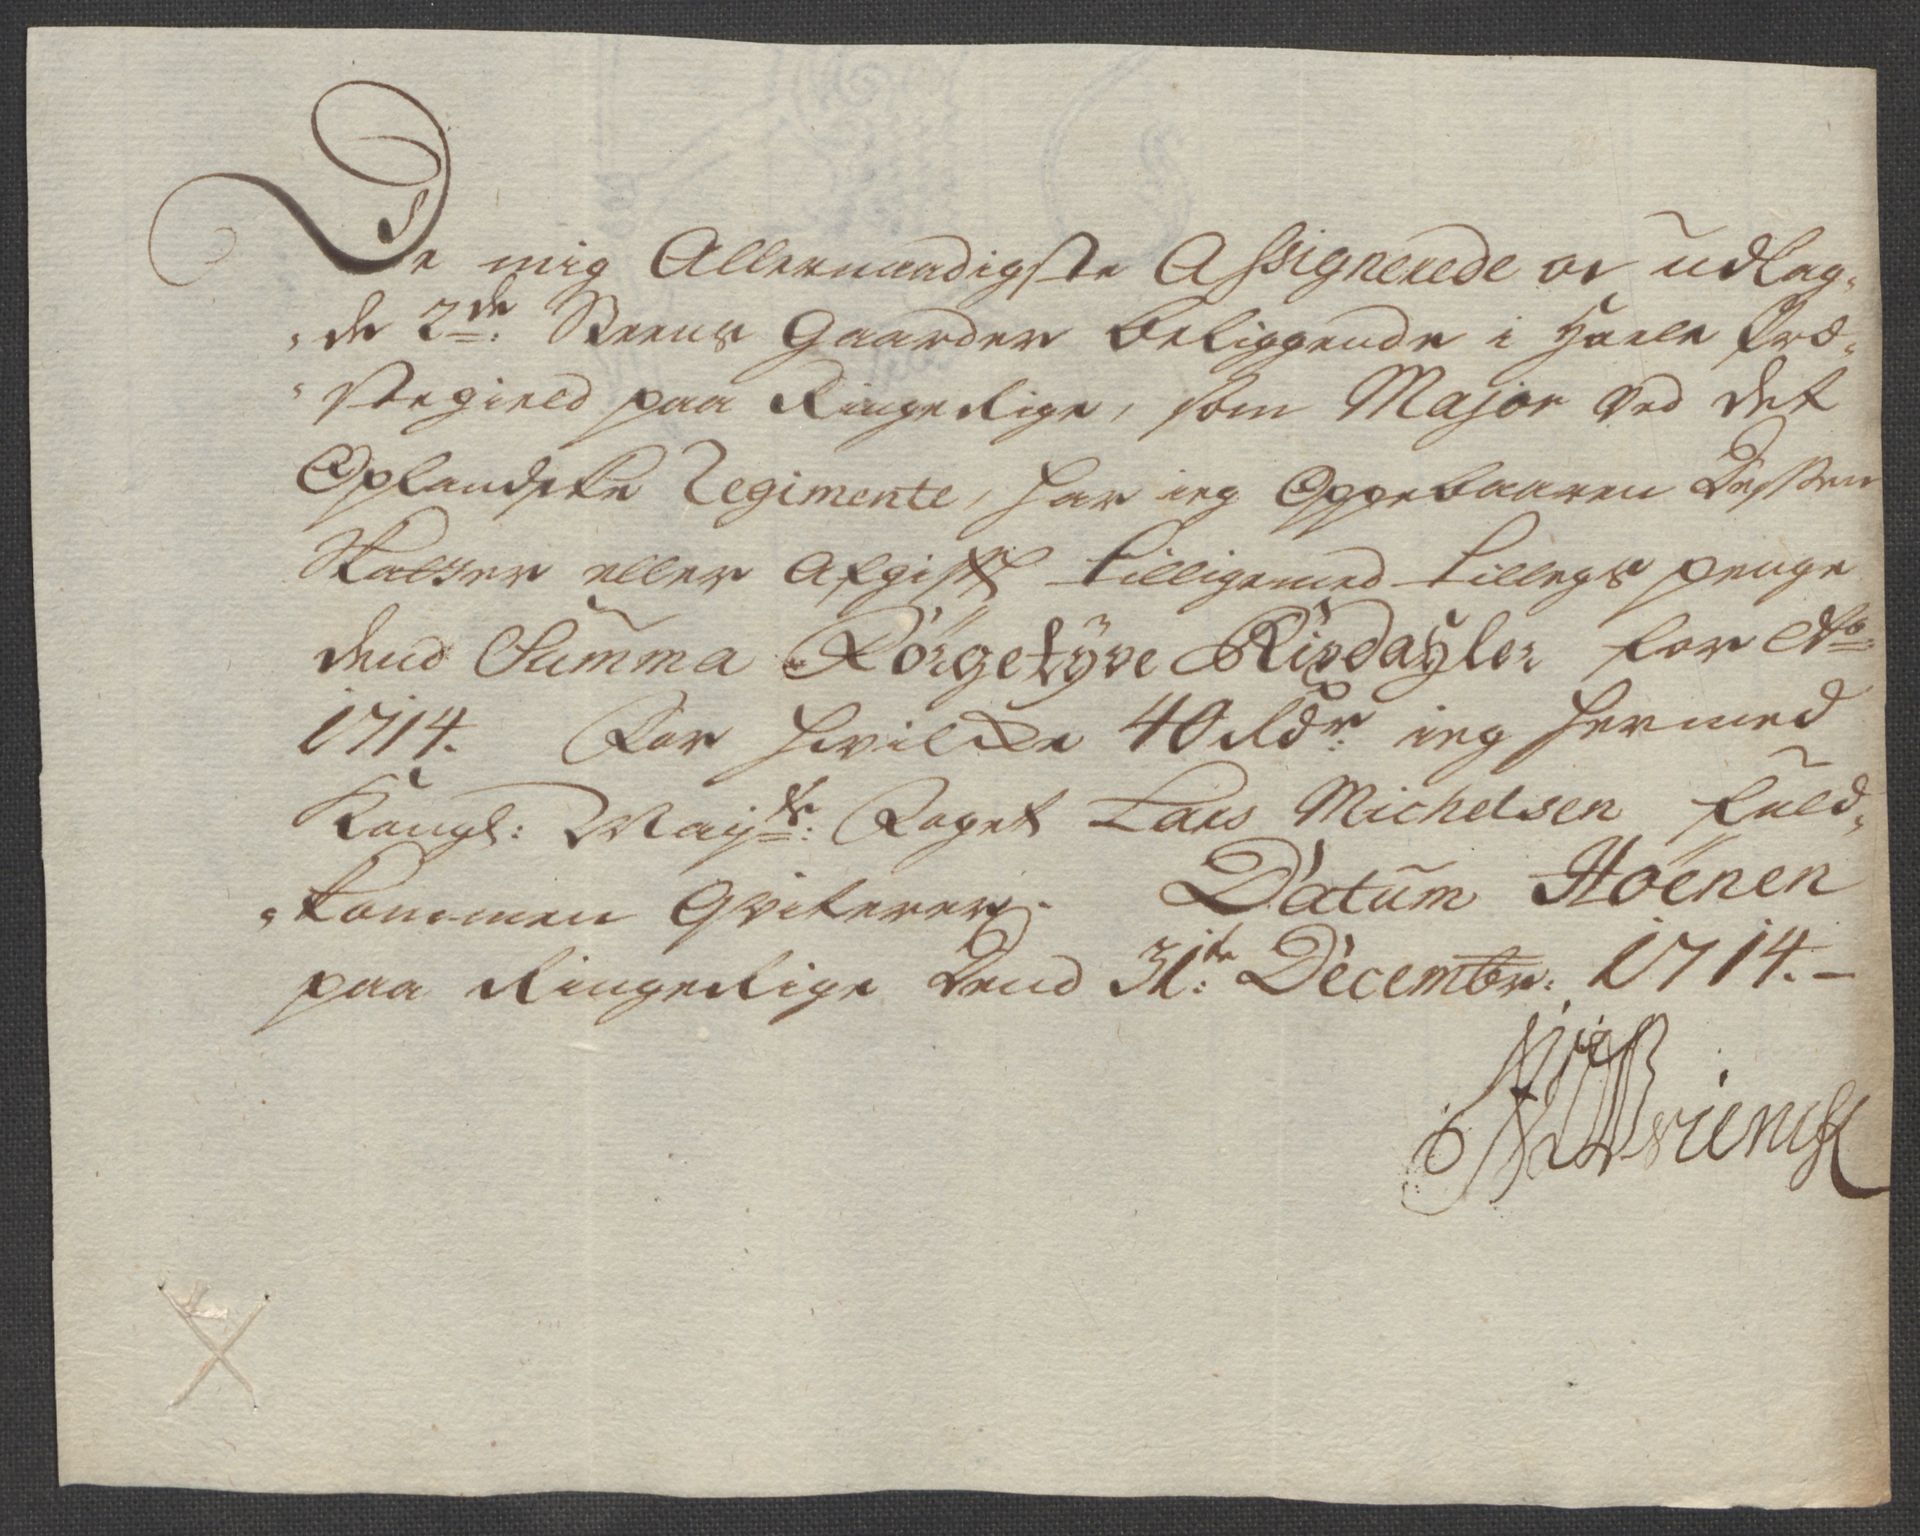 De mig Allernaadigste Assignerede oc udlag-
de 2de: Steens Gaarder beliggende i Hoele Præ-
stegield paa Ringerige, som Major ved det
Oplandske Regimente, har ieg Oppebaaren Dessen
Skatter eller Afgift tilligemed tillegs penge
dend Summa Förgetÿve Rixdaÿler for Ao:
1714. For hvilcke 40 Rdr: ieg hermed
Kongl: Maÿts: Foget Lars Michelsen fuld-
kommen Qviterer. Datum Höenen
paa Ringerige Dend 31te: Decembr: 1714.-